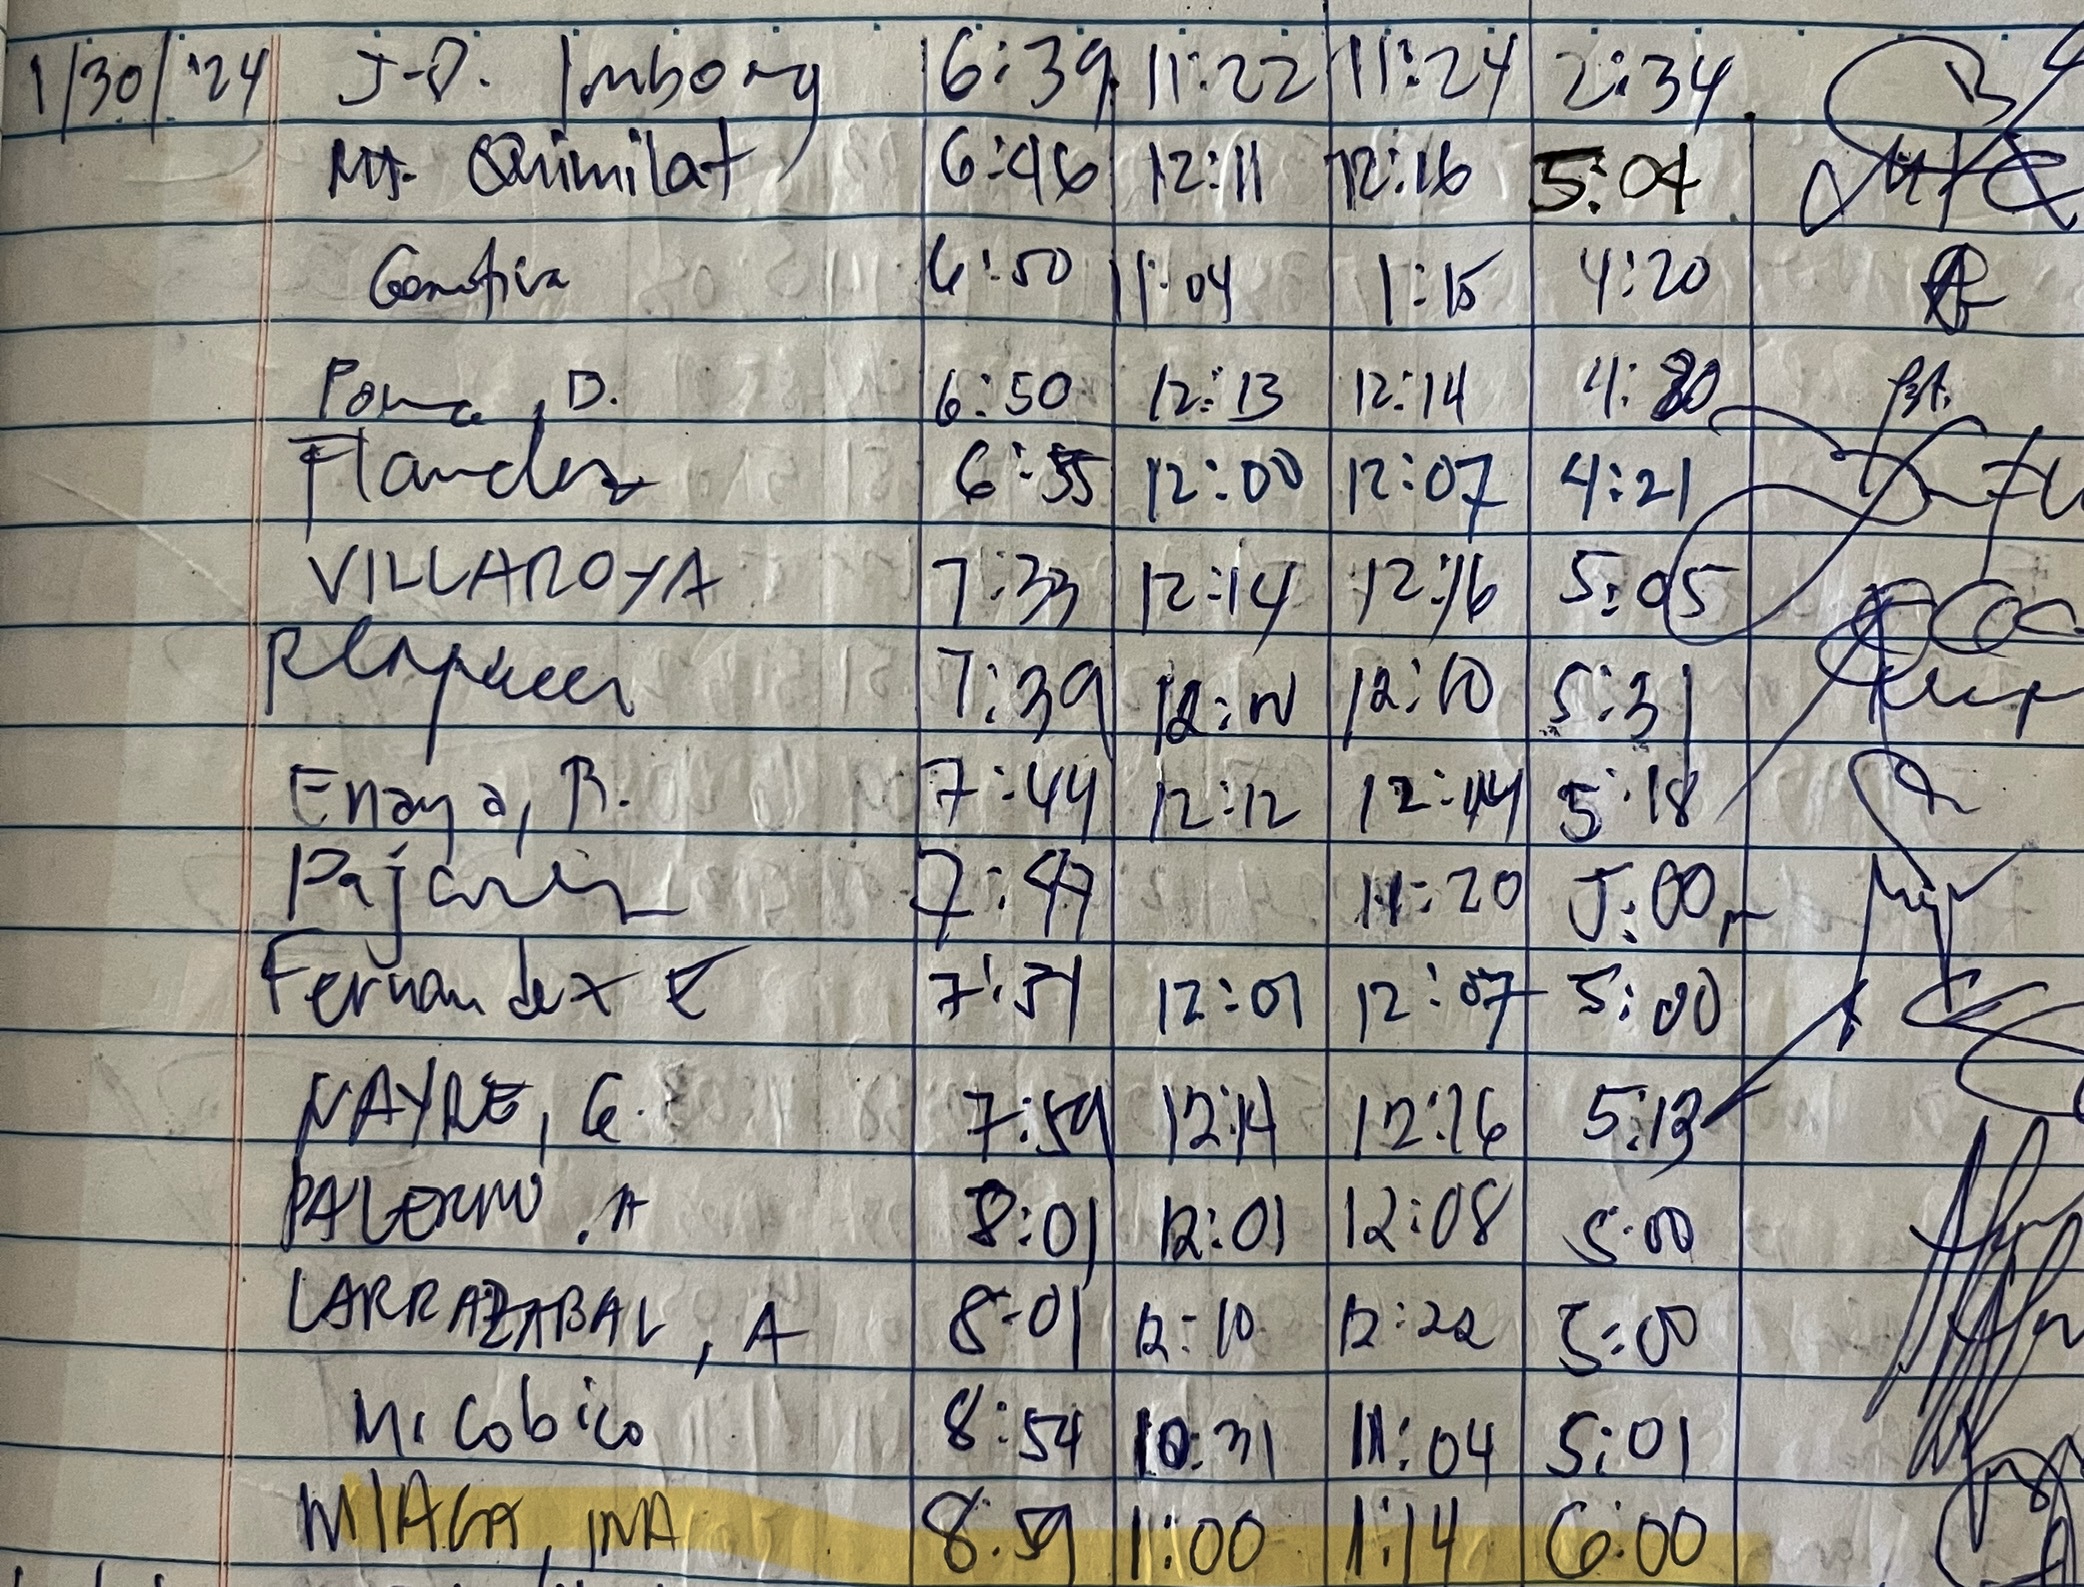 1/30/'24 J-D. Imborg 6:39 11:22 11:24 2:34
MA. Quimilat 6:46 12:11 12:16 5:04
6:50 11:04 1:15 4:20
, D. 6:50 12:13 12:14 4:30
Flandez 6:55 12:00 12:07 4:21
VILLAROYA 7:33 12:14 12:16 5:05
7:39 12:10 5:31
Enaya, R. 7:44 12:12 12:44 5:18
7:47 11:20 5:00
Fernandez E 7:51 12:01 12:07 5:00
NAYRE, G. 7:59 12:14 12:16 5:13
PALERMO, A 8:01 12:01 12:08 5:00
LARRAZABAL, A 8:01 12:10 12:22 5:00
N. Cobico 8:54 10:31 11:04 5:01
MIAGA, INA 8:59 1:00 1:14 6:00